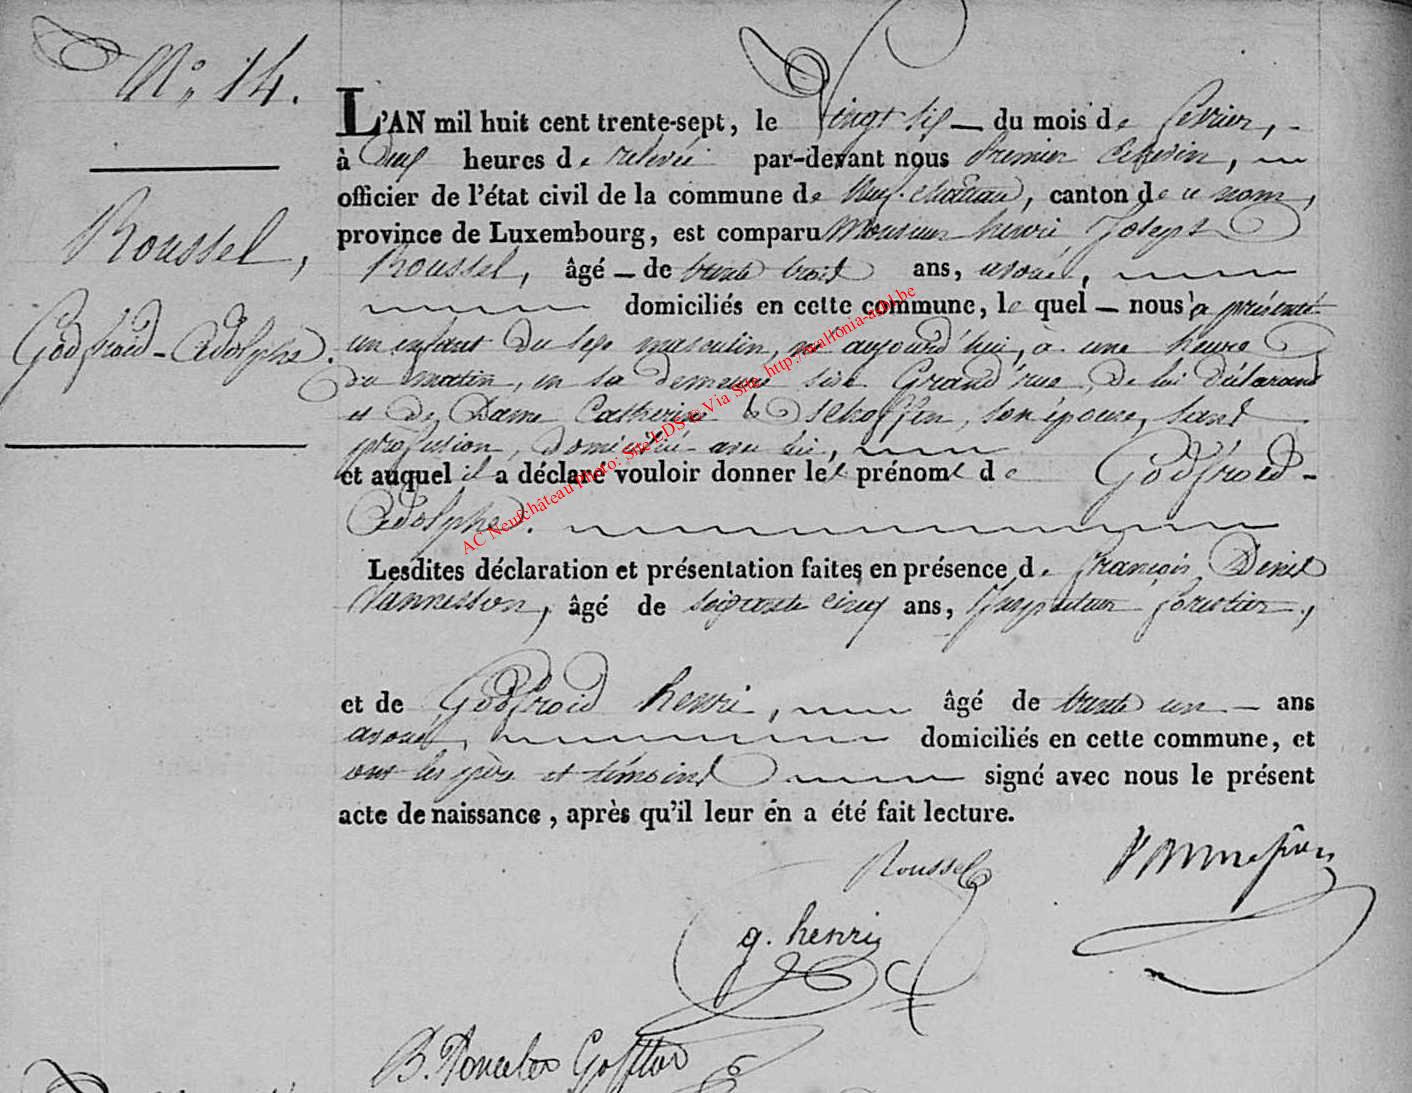 N° 14.
L'AN mil huit cent trente-sept, le Vingt six — du mois de fevrier,
à Deux heures de relevée par-devant nous Premier Echevin,
officier de l'état civil de la commune de Neuf-château, canton de ce nom,
Roussel,
province de Luxembourg, est comparu Monsieur henri Joseph
Roussel, âgé — de trente trois ans, avoué,
domiciliés en cette commune, le quel — nous a présenté
Godfroid-Adolphe.
un enfant du sexe masculin, né aujourd'hui, à une heure
du matin, en sa demeure sise Grand'rue, de lui déclarant
et de Dame Catherine Schoffen, son épouse, sans
profession, domiciliée avec lui,
et auquel il a déclaré vouloir donner les prénoms de Godfroid-
Adolphe.
Lesdites déclaration et présentation faites en présence de françois Denis
Vannesson, âgé de soixante cinq ans, Inspecteur forestier,
et de Godfroid henri, âgé de trente un — ans
avoué, domiciliés en cette commune, et
ont les père et témoins signé avec nous le présent
acte de naissance, après qu'il leur en a été fait lecture.
Roussel
g. henri
AC Neufchâteau Photo: Site LDS © Via Site http://wallonia-asbl.be